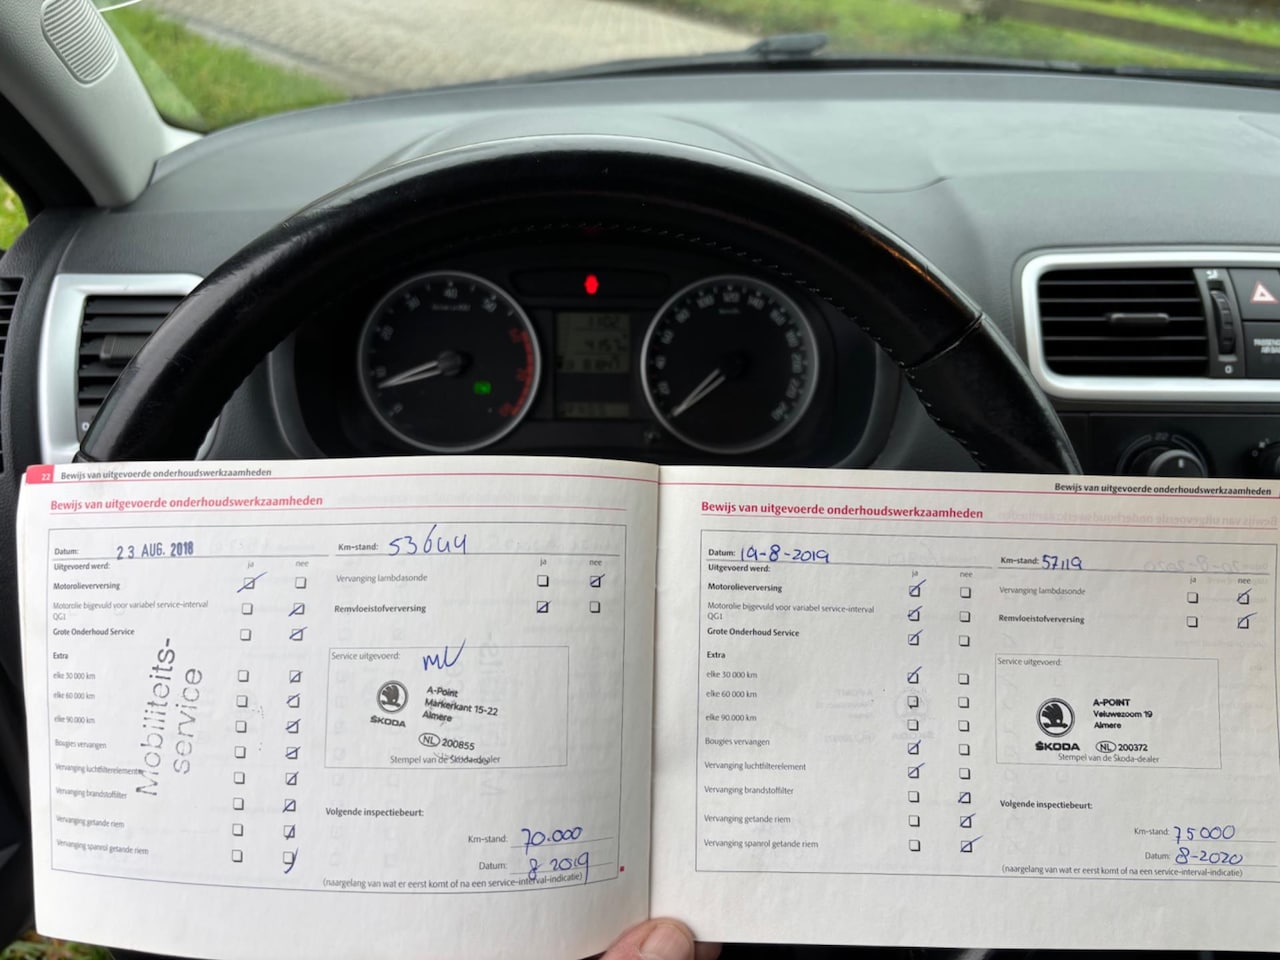 22 Bewijs van uitgevoerde onderhoudswerkzaamheden
Bewijs van uitgevoerde onderhoudswerkzaamheden
Datum: 23 AUG. 2018
Km-stand: 53644
Uitgevoerd werd:
ja nee
ja nee
Motorolieverversing
Vervanging lambdasonde
Motorolie bijgevuld voor variabel service-interval
QG1
Remvloeistofverversing
Grote Onderhoud Service
Extra
elke 30 000 km
elke 60 000 km
elke 90.000 km
Bougies vervangen
Vervanging luchtfilterelement
Vervanging brandstoffilter
Vervanging getande riem
Vervanging spanrol getande riem
Mobiliteits-
service
Service uitgevoerd:
ŠKODA
A-Point
Markerkant 15-22
Almere
NL 200855
Stempel van de Škoda-dealer
Volgende inspectiebeurt:
Km-stand: 70.000
Datum: 8 2019
(naargelang van wat er eerst komt of na een service-interval-indicatie)
Bewijs van uitgevoerde onderhoudswerkzaamheden
Bewijs van uitgevoerde onderhoudswerkzaamheden
Datum: 19-8-2019
Km-stand: 57119
Uitgevoerd werd:
ja nee
ja nee
Motorolieverversing
Vervanging lambdasonde
Motorolie bijgevuld voor variabel service-interval
QG1
Remvloeistofverversing
Grote Onderhoud Service
Extra
elke 30 000 km
elke 60 000 km
elke 90.000 km
Bougies vervangen
Vervanging luchtfilterelement
Vervanging brandstoffilter
Vervanging getande riem
Vervanging spanrol getande riem
Service uitgevoerd:
ŠKODA
A-POINT
Veluwezoom 19
Almere
NL 200372
Stempel van de Škoda-dealer
Volgende inspectiebeurt:
Km-stand: 75000
Datum: 8-2020
(naargelang van wat er eerst komt of na een service-interval-indicatie)